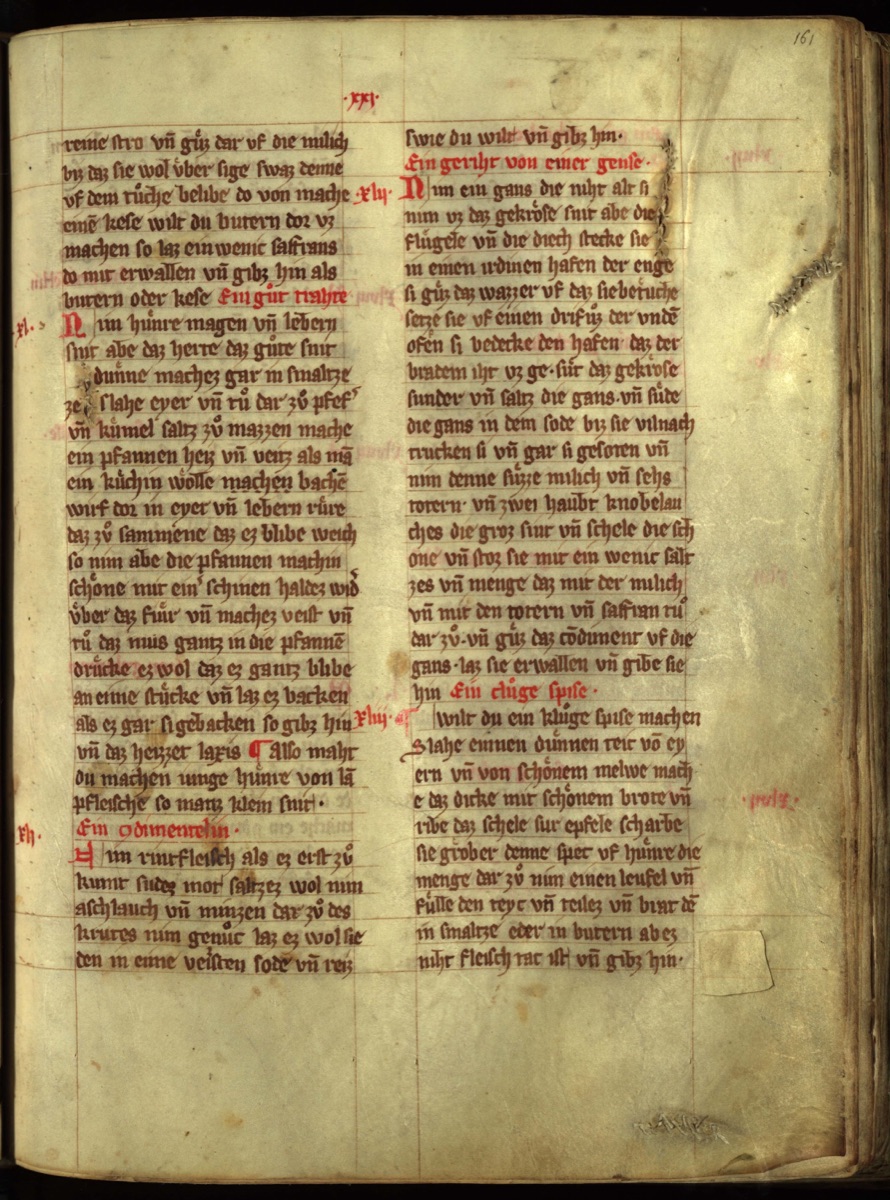 161
·xxi·
reine stro vñ güz dar vf die milich
biz daz sie wol v̊ber sige swaz denne
vf dem tůche belibe do von mache
einē kese wilt du butern dor vz
machen so laz ein wenic saffrans
do mit erwallen vñ gibz hin als
butern oder kese Ein gůt trahte
·xl· Nim hůnre magen vñ lebern
snit abe daz herte daz gůte snit
dünne machez gar in smaltze
ze slahe eyer vñ tů dar zů pfef᷑
vñ kůmel saltz zů mazzen mache
ein pfannen heiz vñ veitz als mā
ein kůchin wölle machen bachē
wirf dor in eyer vñ lebern rüre
daz zů sammene daz ez blibe weich
so nim abe die pfannen machin
schöne mit ein᷑ schinen haldez wid᷑
v̊ber daz fiur vñ machez veist vñ
tů daz mus gantz in die pfannē
drücke ez wol daz ez gantz blibe
an eime stücke vñ laz ez backen
als ez gar si gebacken so gibz hin
vñ daz heizzet laxis ¶ Also maht
du machen iunge hůnre von lā
pfleische so manz klein snit·
·xli· Ein condimentelin·
Nim rintfleisch als ez erst zů
kumt sudez mor saltzez wol nim
aschlauch vñ minzen dar zů des
krutes nim genůc laz ez wol sie
den in eime veisten sode vñ reiz
swie du wilt vñ gibz hin·
Ein geriht von einer gense·
·xlij· Nim ein gans die niht alt si
nim vz daz gekröse snit abe die
flügele vñ die diech stecke sie
in einen irdinen hafen der enge
si güz daz wazzer vf daz sie betuche
setze sie vf einen drifuz der vndē
ofen si bedecke den hafen daz der
bradem iht vz ge· süt daz gekröse
sunder vñ saltz die gans· vñ süde
die gans in dem sode biz sie vilnach
trucken si vñ gar si gesoten vñ
nim denne süzze milich vñ sehs
totern· vñ zwei haubt knobelau
ches die groz sint vñ schele die sch
one vñ stoz sie mit ein wenic salt
zes vñ menge daz mit der milich
vñ mit den totern vñ saffran tů
dar zů· vñ güz daz cōdiment vf die
gans· laz sie erwallen vñ gibe sie
hin Ein clůge spise·
·xliij· ¶ wilt du ein klůge spise machen
Slahe einnen dünnen teic vō ey
ern vñ von schönem melwe mach
e daz dicke mit schönem brote vñ
ribe daz schele sur epfele scharbe
sie grober denne spec vf hůnre die
menge dar zů nim einen leufel vñ
fülle den teyc vñ teilez vñ brat dē
in smaltze eder in butern ab ez
niht fleisch tac ist vñ gibz hin·